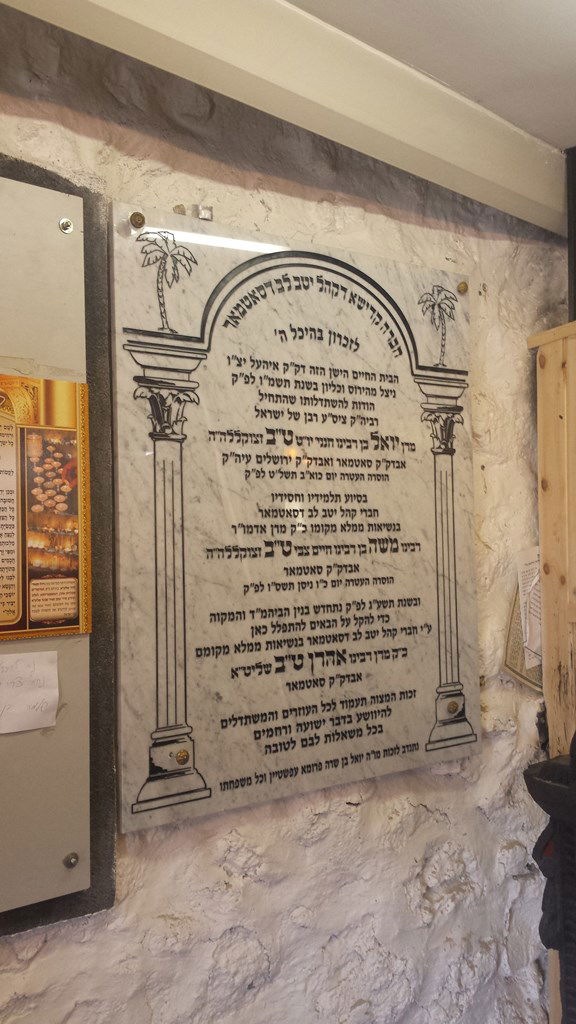 חברה קדישא דקהל יטב לב דסאטמאר
לזכרון בהיכל ה'
הבית החיים הישן הזה דק"ק איהעל יצ"ו
ניצל מהירוס וכליון בשנת תשמ"ו לפ"ק
הודות להשתדלותו שהתחיל
רביה"ק ציס"ע רבן של ישראל
מרן יואל בן רבינו חנני' יו"ט ט"ב זצוקללה"ה
אבדק"ק סאטמאר ואבדק"ק ירושלים עיה"ק
הוסרה העטרה יום כוא"ב תשל"ט לפ"ק
בסיוע תלמידיו וחסידיו
חברי קהל יטב לב דסאטמאר
בנשיאות ממלא מקומו כ"ק מרן אדמו"ר
רבינו משה בן רבינו חיים צבי ט"ב זצוקללה"ה
אבדק"ק סאטמאר
הוסרה העטרה יום כ"ו ניסן תשס"ו לפ"ק
ובשנת תשע"ג לפ"ק נתחדש בנין הביהמ"ד והמקוה
כדי להקל על הבאים להתפלל כאן
ע"י חברי קהל יטב לב דסאטמאר בנשיאות ממלא מקומם
כ"ק מרן רבינו אהרן ט"ב שליט"א
אבדק"ק סאטמאר
זכות המצוה תעמוד לכל העוזרים והמשתדלים
להיוושע בדבר ישועה ורחמים
בכל משאלות לבם לטובה
נתנדב לזכות מו"ה יואל בן שרה פרומא עפשטיין וכל משפחתו